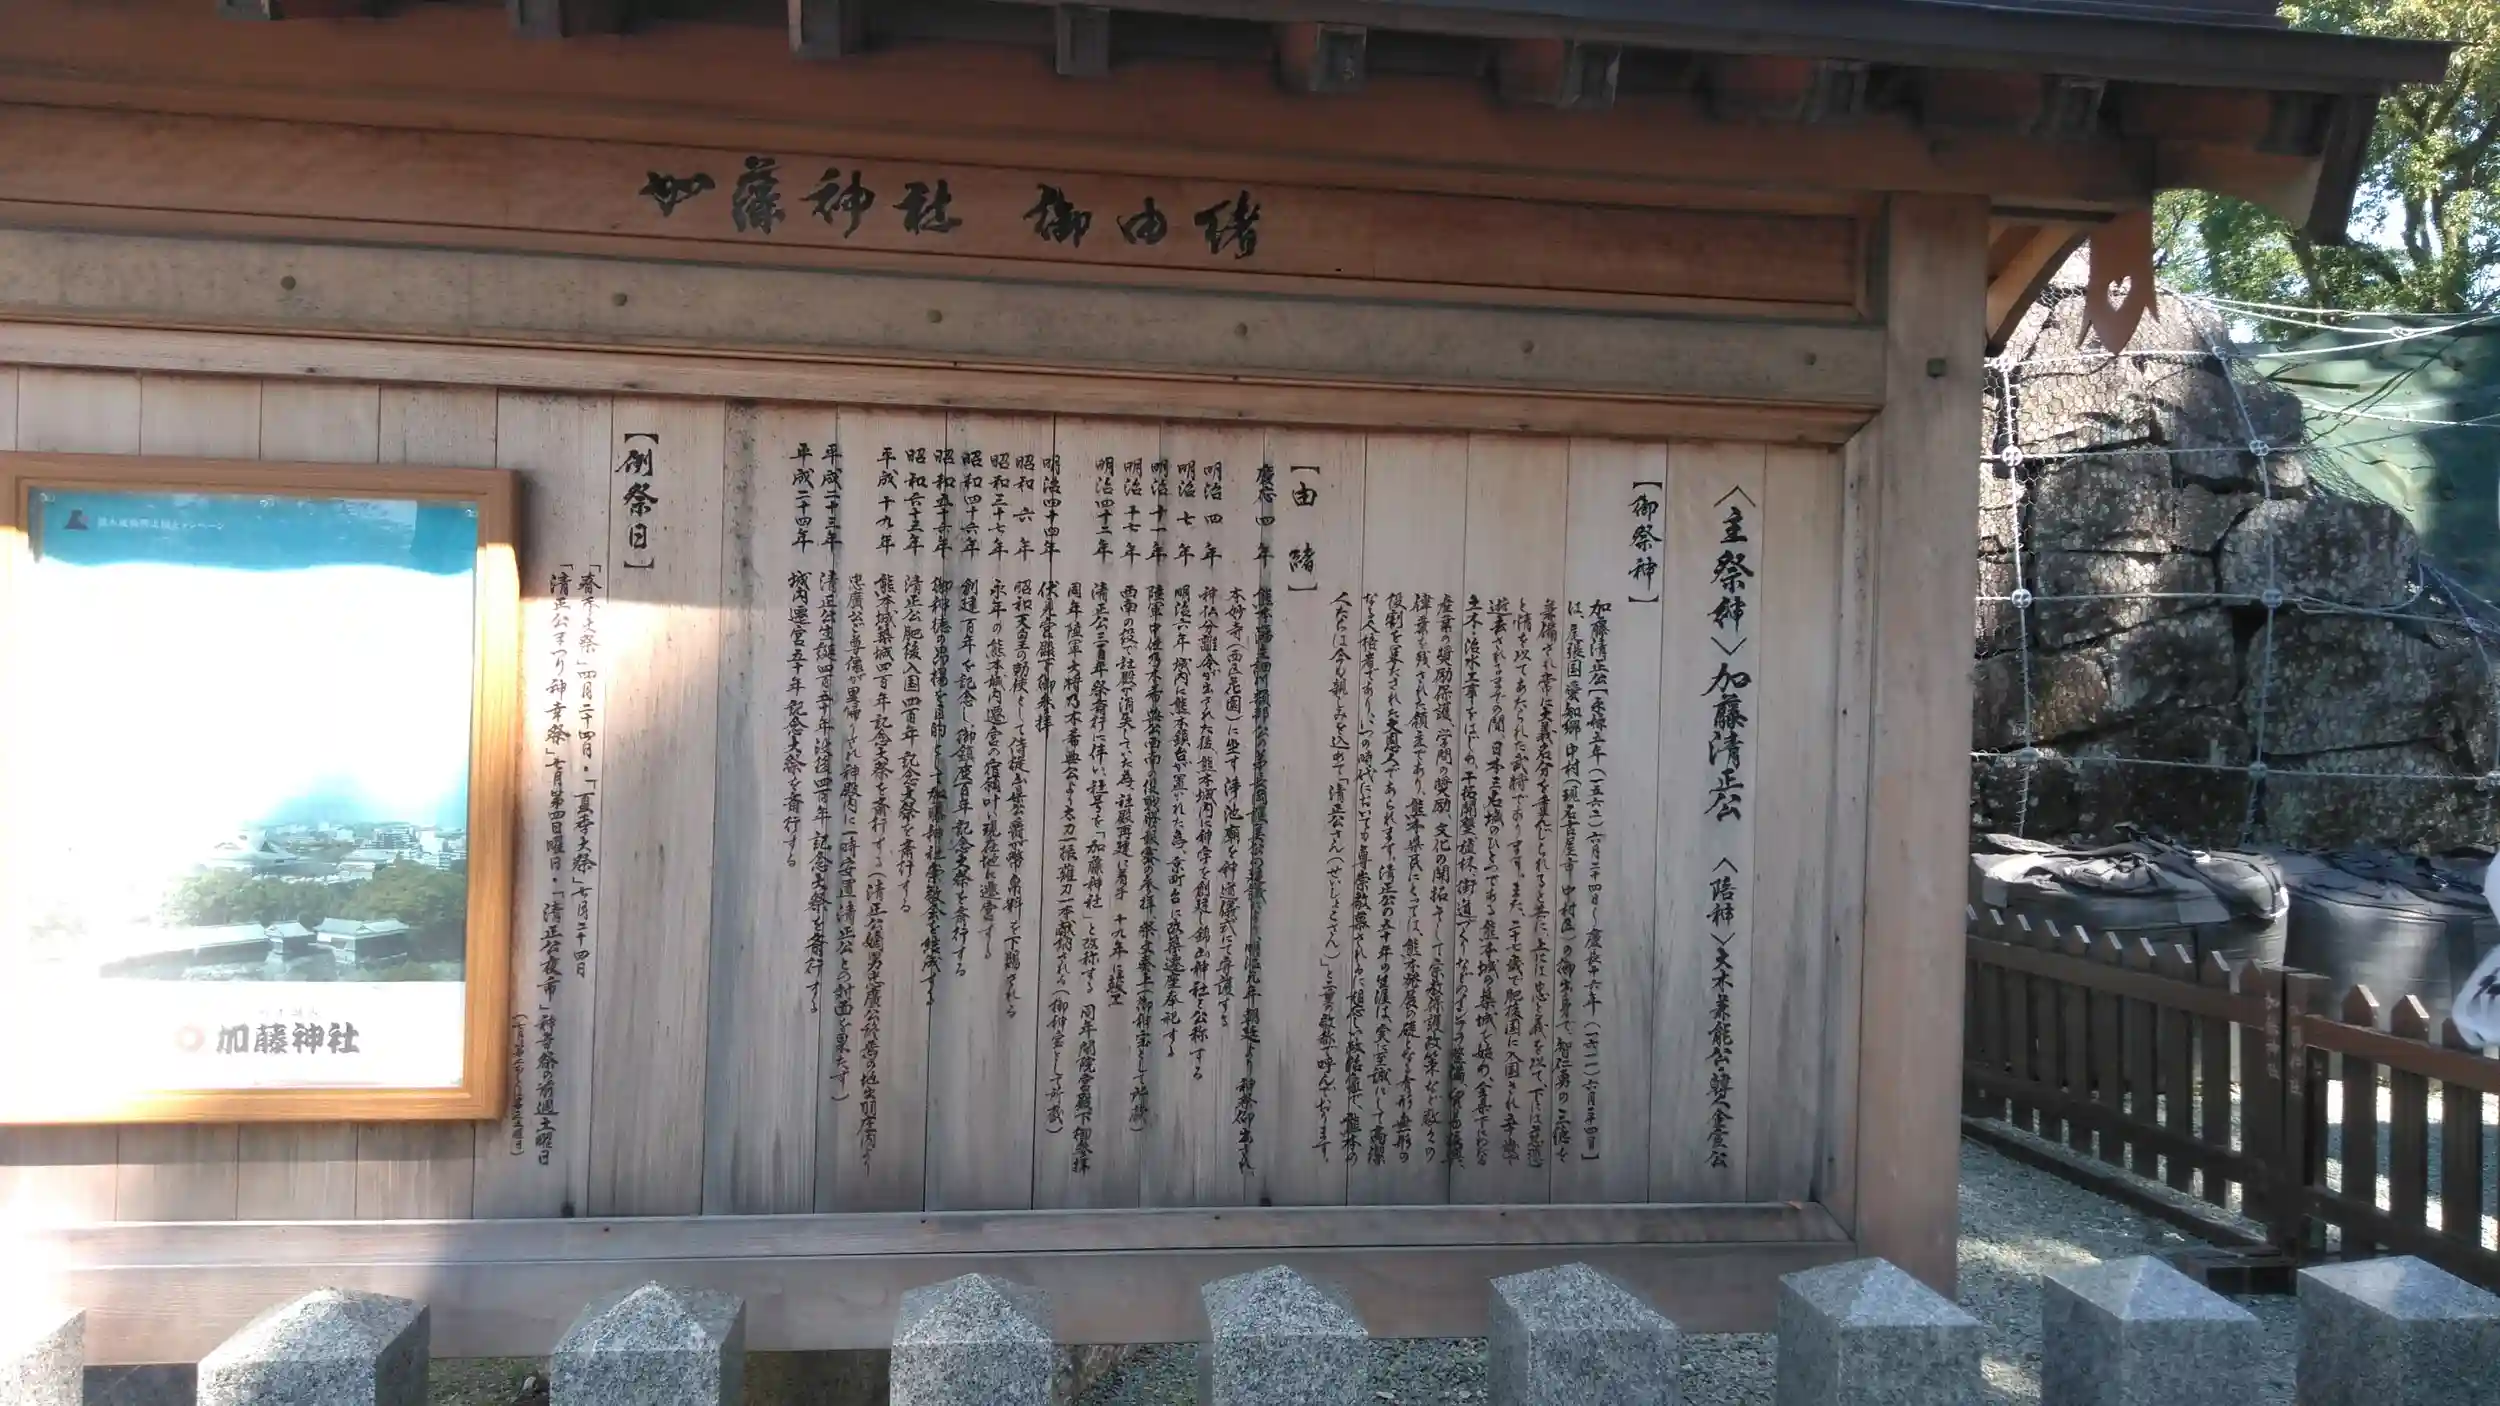 加藤神社 御由緒
〈主祭神〉加藤清正公 〈陪神〉大木兼能公・韓人金宦公
【御祭神】
加藤清正公【永禄五年(一五六二)六月二十四日~慶長十六年(一六一一)六月二十四日】
は、尾張国愛知郷中村(現名古屋市中村区)の御出身で、智仁勇の三徳を
兼備され常に大義名分を重んじられると共に、上には忠と義を以て、下には慈悲
と情を以てあたられた武将であります。また、二十七歳で肥後国に入国され五十歳で
逝去されるまでの間、日本三名城のひとつである熊本城の築城を始め、全県下にわたる
土木・治水工事をはじめ、干拓開墾、植林、街道づくりなどのインフラ整備、貿易振興、
産業の奨励保護、学問の奨励、文化の開拓、そして宗教保護政策など数々の
偉業を残された領主であり、熊本県民にとっては、熊本発展の礎となる有形無形の
役割を果たされた大恩人であられます。清正公の五十年の生涯は、実に至誠にして高潔
なる人格者であり、いつの時代においても尊崇敬慕されるに相応しい政治家で、熊本の
人たちは今も親しみを込めて「清正公さん(せいしょこさん)」と二重の敬称で呼んでおります。
【由緒】
慶応四年 熊本藩主細川韶邦公の弟長岡護美公の提議により、明治元年朝廷より神祭仰出され
本妙寺(西区花園)に坐す浄池廟を神道儀式にて守護する
明治四年 神仏分離令が出された後、熊本城内に神宇を創建し錦山神社と公称する
明治七年 明治六年城内に熊本鎮台が置かれた為、京町台に改築遷座奉祀する
明治十一年 陸軍中佐乃木希典公西南の役戦勝報賽の参拝、祭文奏上(御神宝として所蔵)
明治十七年 西南の役で社殿が消失していた為、社殿再建に着手 十九年に竣工
明治四十二年 清正公三百年祭斎行に伴い、社号を「加藤神社」と改称する 同年閑院宮殿下御参拝
同年陸軍大将乃木希典公より太刀一振薙刀一本献納される(御神宝として所蔵)
明治四十四年 伏見宮殿下御参拝
昭和六年 昭和天皇の勅使として侍従 県公爵が幣帛料を下賜される
昭和三十七年 永年の熊本城内遷宮の宿願叶い現在地に遷宮する
昭和四十六年 創建百年を記念し、御鎮座百年記念大祭を斎行する
昭和五十六年 御神徳の昂揚を目的として加藤神社崇敬会を結成する
昭和六十三年 清正公肥後入国四百年記念大祭を斎行する
平成十九年 熊本城築城四百年記念大祭を斎行する(清正公嫡男忠廣公終焉の地出羽庄内より
忠廣公ご尊像が里帰りされ神殿内に一時安置 清正公との対面を果たす)
平成二十三年 清正公生誕四百五十年没後四百年記念大祭を斎行する
平成二十四年 城内遷宮五十年記念大祭を斎行する
【例祭日】
「春季大祭」四月二十四日・「夏季大祭」七月二十四日
「清正公まつり神幸祭」七月第四日曜日・「清正公夜市」神幸祭の前週土曜日
加藤神社